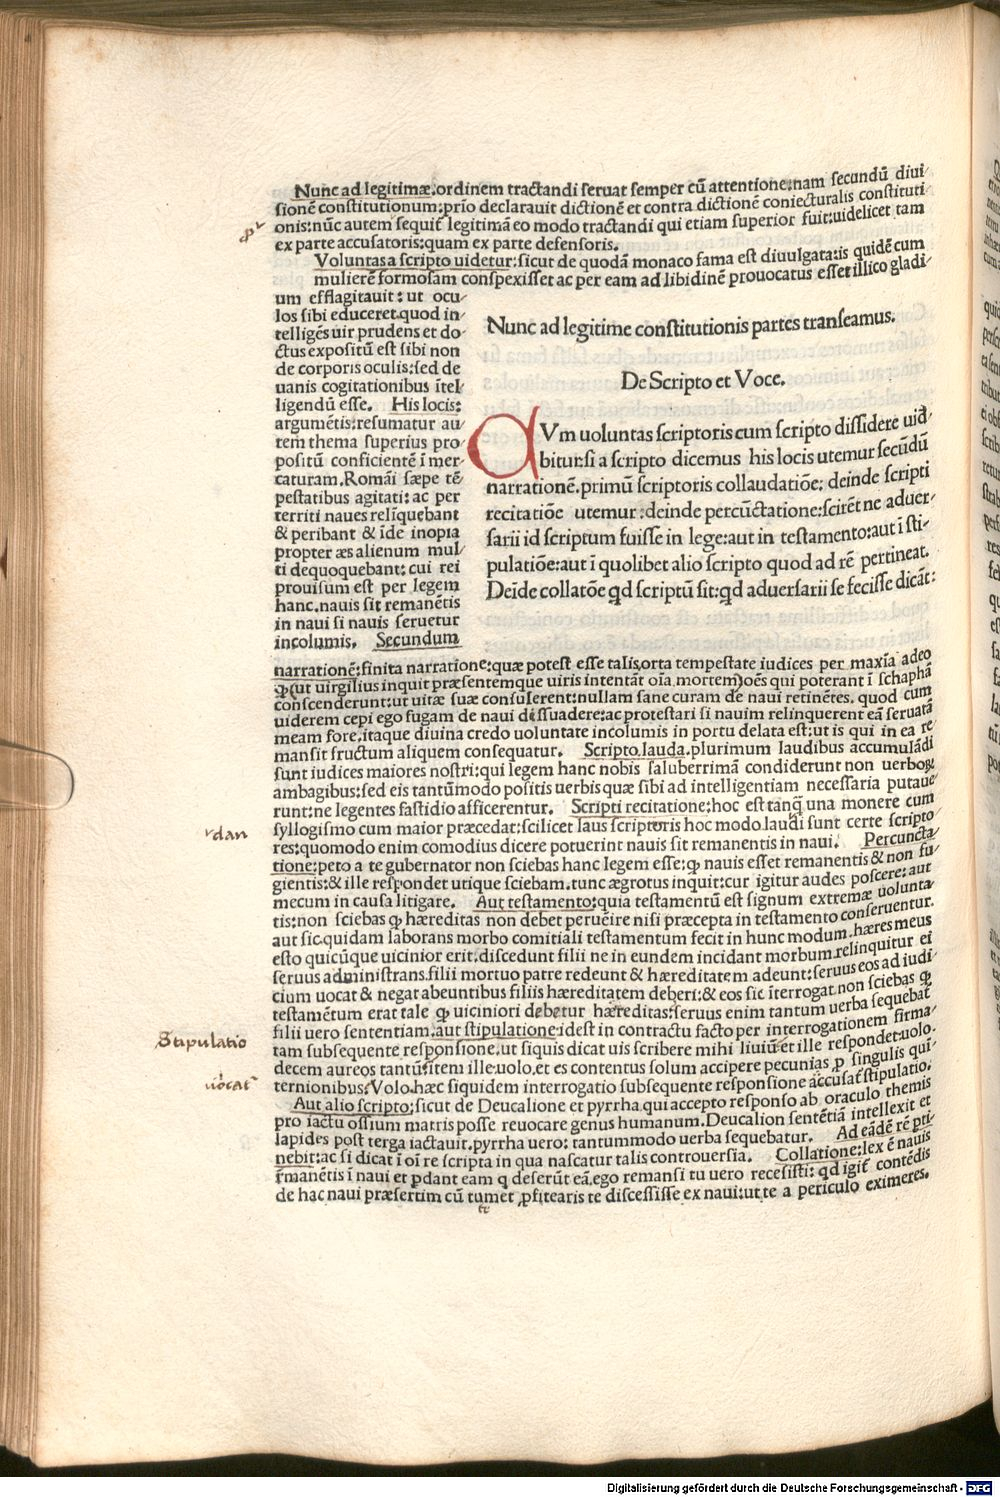 Nunc ad legitimæ.ordinem tractandi seruat semper cũ attentione:nam secundũ diui/
sionẽ constitutionum:prio declarauit dictionẽ et contra dictionẽ coniecturalis constituti/
onis:nũc autem sequit̃ legitimã eo modo tractandi qui etiam superior fuit:uidelicet tam
ex parte accusatoris:quam ex parte defensoris.
Voluntas a scripto uidetur:sicut de quodã monaco fama est diuulgata:is quidẽ cum
mulierẽ formosam conspexisset ac per eam ad libidinẽ prouocatus esset illico gladi/
um efflagitauit: ut ocu/
los sibi educeret.quod in/
telligẽs uir prudens et do/
ctus expositũ est sibi non
de corporis oculis:sed de
uanis cogitationibus ĩtel/
ligendũ esse. His locis:
argumẽtis:resumatur au/
tem thema superius pro/
positũ conficientẽ ĩ mer/
caturam.Romãi sæpe tẽ/
pestatibus agitati: ac per
territi naues relĩquebant
& peribant & ĩde inopia
propter æs alienum mul/
ti dequoquebant: cui rei
prouisum est per legem
hanc.nauis sit remanẽtis
in naui si nauis seruetur
incolumis. Secundum
Nunc ad legitime constitutionis partes transeamus.
De Scripto et Voce.
CVm uoluntas scriptoris cum scripto dissidere uid̃/
bitur:si a scripto dicemus his locis utemur secũdũ
narrationẽ.primũ scriptoris collaudatiõe: deinde scripti
recitatiõe utemur:deinde percũctatione:scirẽt ne aduer/
sarii id scriptum fuisse in lege:aut in testamento:aut ĩ sti/
pulatiõe:aut ĩ quolibet alio scripto quod ad rẽ pertineat.
Deĩde collatõe qd scriptũ sit:qd aduersarii se fecisse dicãt:
narrationẽ:finita narratione:quæ potest esse talis,orta tempestate iudices per maxĩa adeo
ꝙ(ut uirgilius inquit præsentemque uiris intentãt oĩa mortem)oẽs qui poterant ĩ schaphã
conscenderunt:ut uitæ suæ consulerent:nullam sane curam de naui retinẽtes. quod cum
uiderem cepi ego fugam de naui dissuadere:ac protestari si nauim relinquerent eã seruatã
meam fore.itaque diuina credo uoluntate incolumis in portu delata est:ut is qui in ea re
mansit fructum aliquem consequatur. Scripto.lauda.plurimum laudibus accumulãdi
sunt iudices maiores nostri:qui legem hanc nobis saluberrimã condiderunt non uerboꝝ
ambagibus:sed eis tantũmodo positis uerbis quæ sibi ad intelligentiam necessaria putaue/
runt:ne legentes fastidio afficerentur. Scripti recitatione:hoc est tanq̃ una monere cum
syllogismo cum maior præcedat:scilicet laus scriptoris hoc modo.laudi sunt certe scripto/
res:quomodo enim comodius dicere potuerint nauis sit remanentis in naui. Percuncta/
tione:peto a te gubernator non sciebas hanc legem esse:ꝙ nauis esset remanentis & non fu/
gientis:& ille respondet utique sciebam.tunc ægrotus inquit:cur igitur audes poscere: aut
mecum in causa litigare. Aut testamento:quia testamentũ est signum extremæ uolunta
tis:non sciebas ꝙ hæreditas non debet peruẽire nisi præcepta in testamento conseruentur.
aut sic.quidam laborans morbo comitiali testamentum fecit in hunc modum.hæres meus
esto quicũque uicinior erit.discedunt filii ne in eundem incidant morbum.relinquitur ei
seruus administrans.filii mortuo patre redeunt & hæreditatem adeunt:seruus eos ad iudi/
cium uocat & negat abeuntibus filiis hæreditatem deberi:& eos sic ĩterrogat.non sciebas ꝙ
testamẽtum erat tale ꝙ uiciniori debetur hæreditas:seruus enim tantum uerba sequebat̃
filii uero sententiam.aut stipulatione:idest in contractu facto per interrogationem firma/
tam subsequente responsione.ut siquis dicat uis scribere mihi liuiũ et ille respondet:uolo.
decem aureos tantũ:item ille.uolo.et es contentus solum accipere pecunias ꝑ singulis qui/
ternionibus:Volo.hæc siquidem interrogatio subsequente responsione accusat̃ stipulatio.
Aut alio scripto:sicut de Deucalione et pyrrha.qui accepto responso ab oraculo themis
pro iactu ossium matris posse reuocare genus humanum.Deucalion sentẽtiã intellexit et
lapides post terga iactauit.pyrrha uero: tantummodo uerba sequebatur. Ad eãdẽ rẽ pti/
nebit:ac si dicat ĩ oĩ re scripta in qua nascatur talis controuersia. Collatione:lex ẽ nauis
rm̃anẽtis ĩ naui et pdant eam q deserũt eã.ego remansi tu uero recesisti: qd igit̃ contẽdis
de hac naui præsertim cũ tumet ꝓfitearis te discessisse ex naui:ut te a periculo eximeres.
dan
Stipulatio
uocat̃
Digitalisierung gefördert durch die Deutsche Forschungsgemeinschaft - DFG